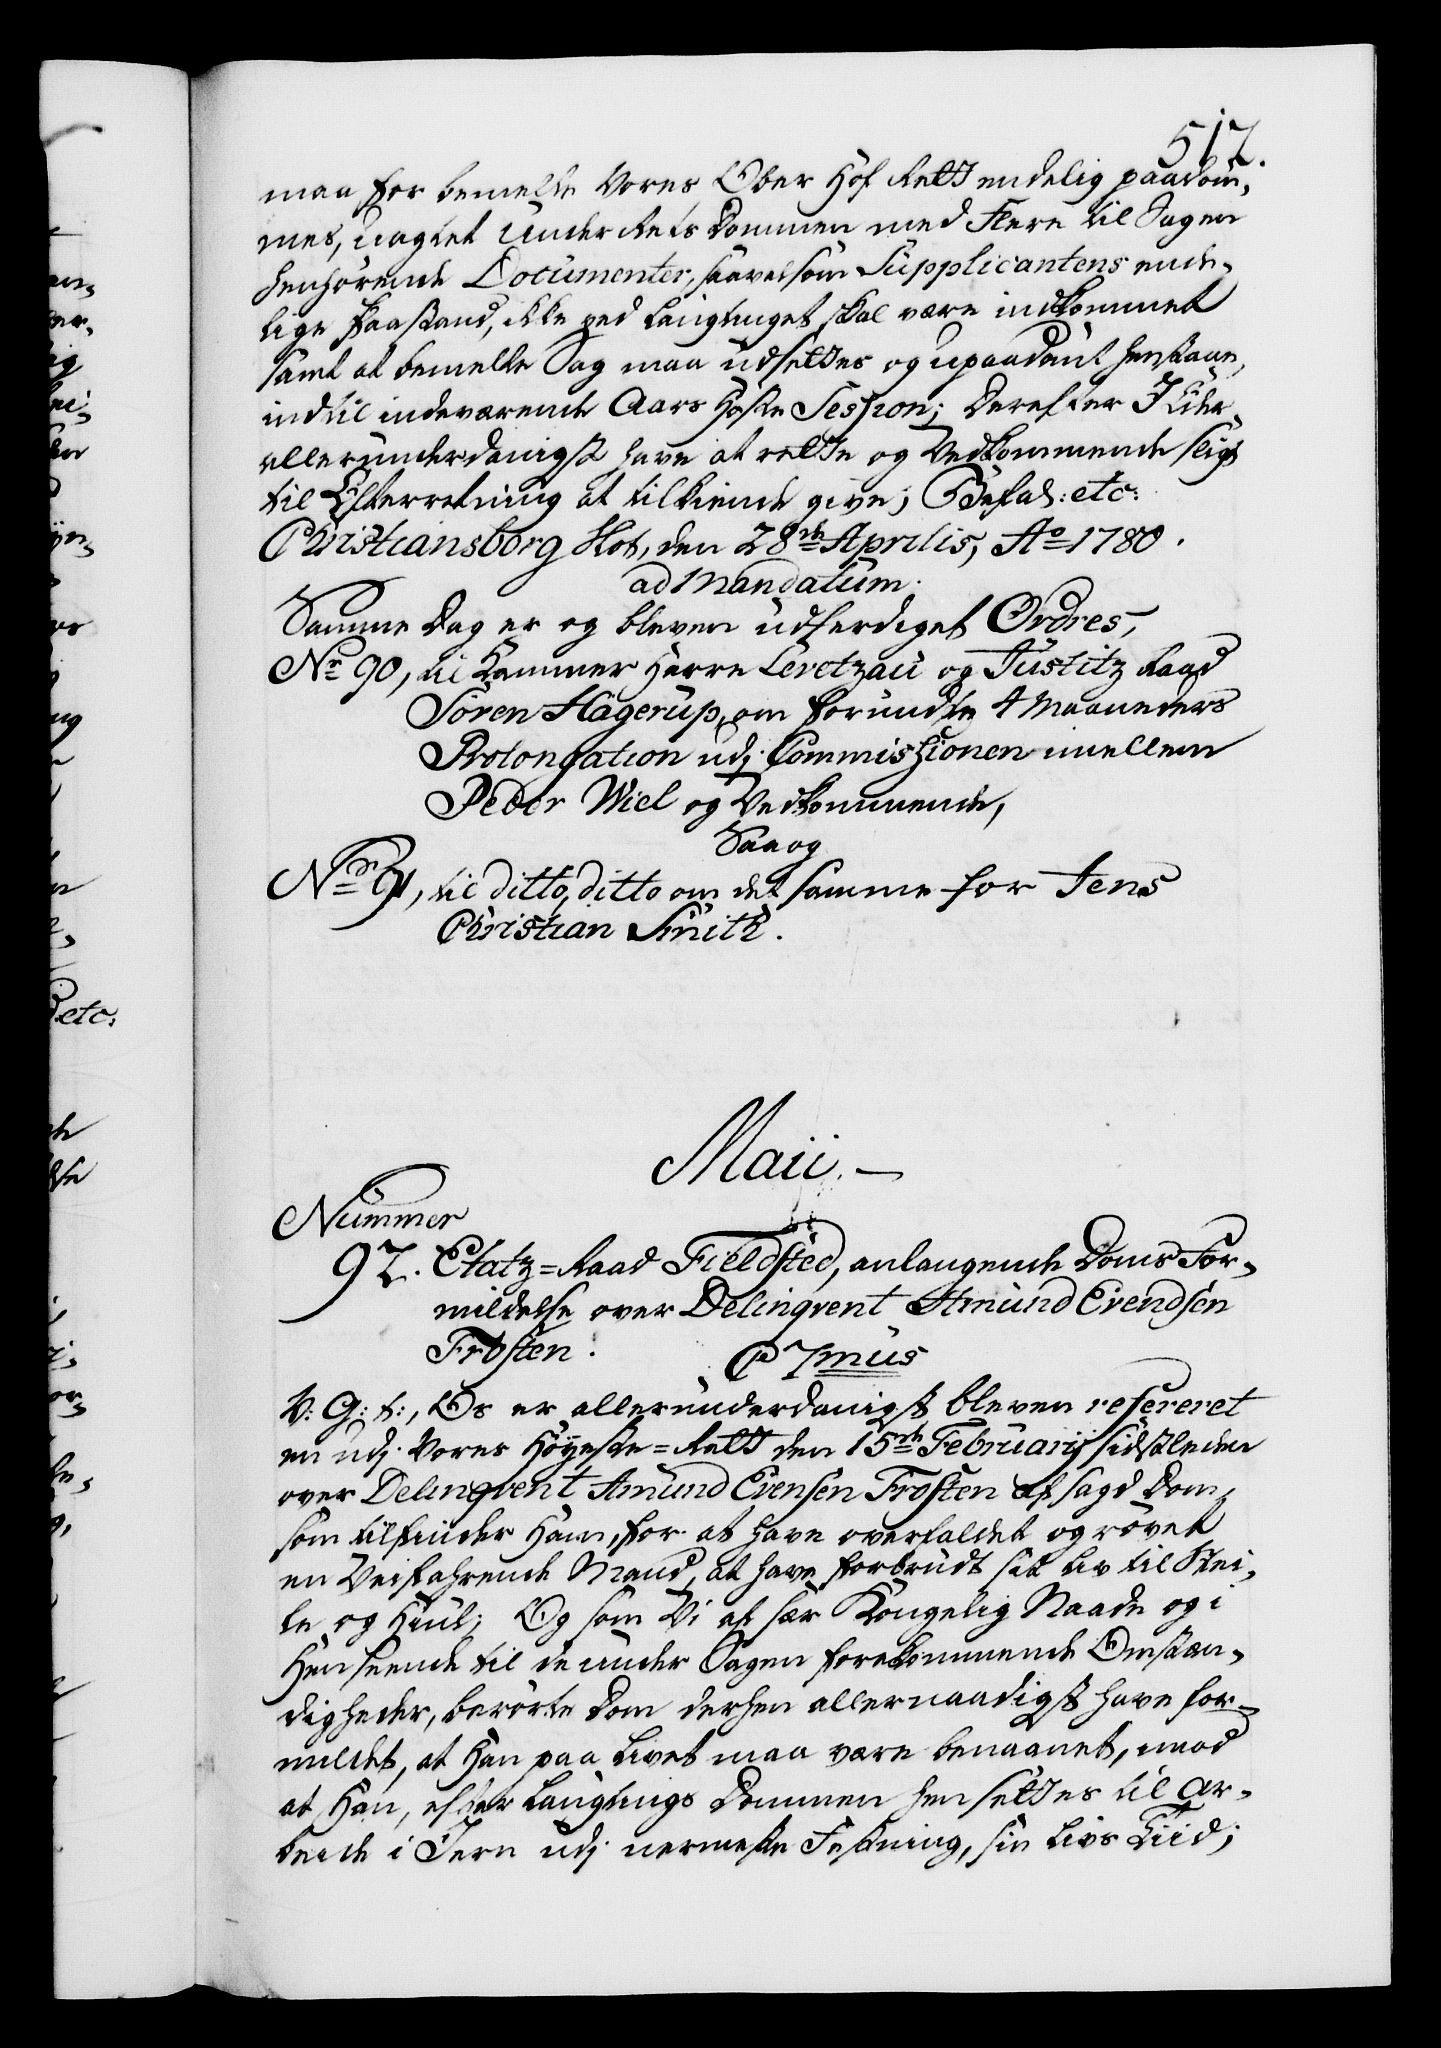 517.
maa for bemelte Vores Ober Hof Rett endelig paadøm,
mes, uagtet Under Rets Dommen med Flere til Sagen
henhørende Documenter, saavelsom Supplicantens ende,
lige Paastand, ikke ved Laugtinget skal være indkommet
samt at bemelte Sag maa udsettes og upaadømt henstaae,
indtil indeværende Aars Høste Session; Derefter I Eder
allerunderdanigst have at rette og Vedkommende sligt
til Efterretning at tilkiende give; Befal: etc:
Christiansborg Slot, den 28de Aprilis, Ao 1780.
ad Mandatum.
Samme Dag er og bleven udferdiget Ordres,
No 90, til Kammer Herre Levetzau og Justitz Raad
Søren Hagerup, om forundte 4 Maaneders
Prolongation udj Commissionen imellem
Peder Wiel og Vedkommende,
Saa og
No 91, til ditto, ditto om det samme for Jens
Christian Smith.
Maii. —
Nummer
92. Etatz=Raad Fieldsted, anlangende Doms For,
mildelse over Delinqvent Amund Evendsen
Frosten.
C 7mus
V: G: t:, Os er allerunderdanigst bleven refereret
en udj Vores Høyeste=Rett den 15de Februarij sidstleden
over Delinqvent Amund Evensen Frosten afsagd Dom,
som tilfinder Ham, for at have overfaldet og røvet
en Veifahrende Mand, at have forbrudt sit Liv til Stei,
le og Hiul; Og som Vi af sær Kongelig Naade og i
Henseende til de under Sagen forekommende Omstæn,
digheder, berørte Dom derhen allernaadigst have for,
mildet, at Han paa Livet maa være benaadet, mod
at Han, efter Laugtings Dommen hensettes til Ar,
beide i Jern udj nermeste Festning, sin Livs Tiid;